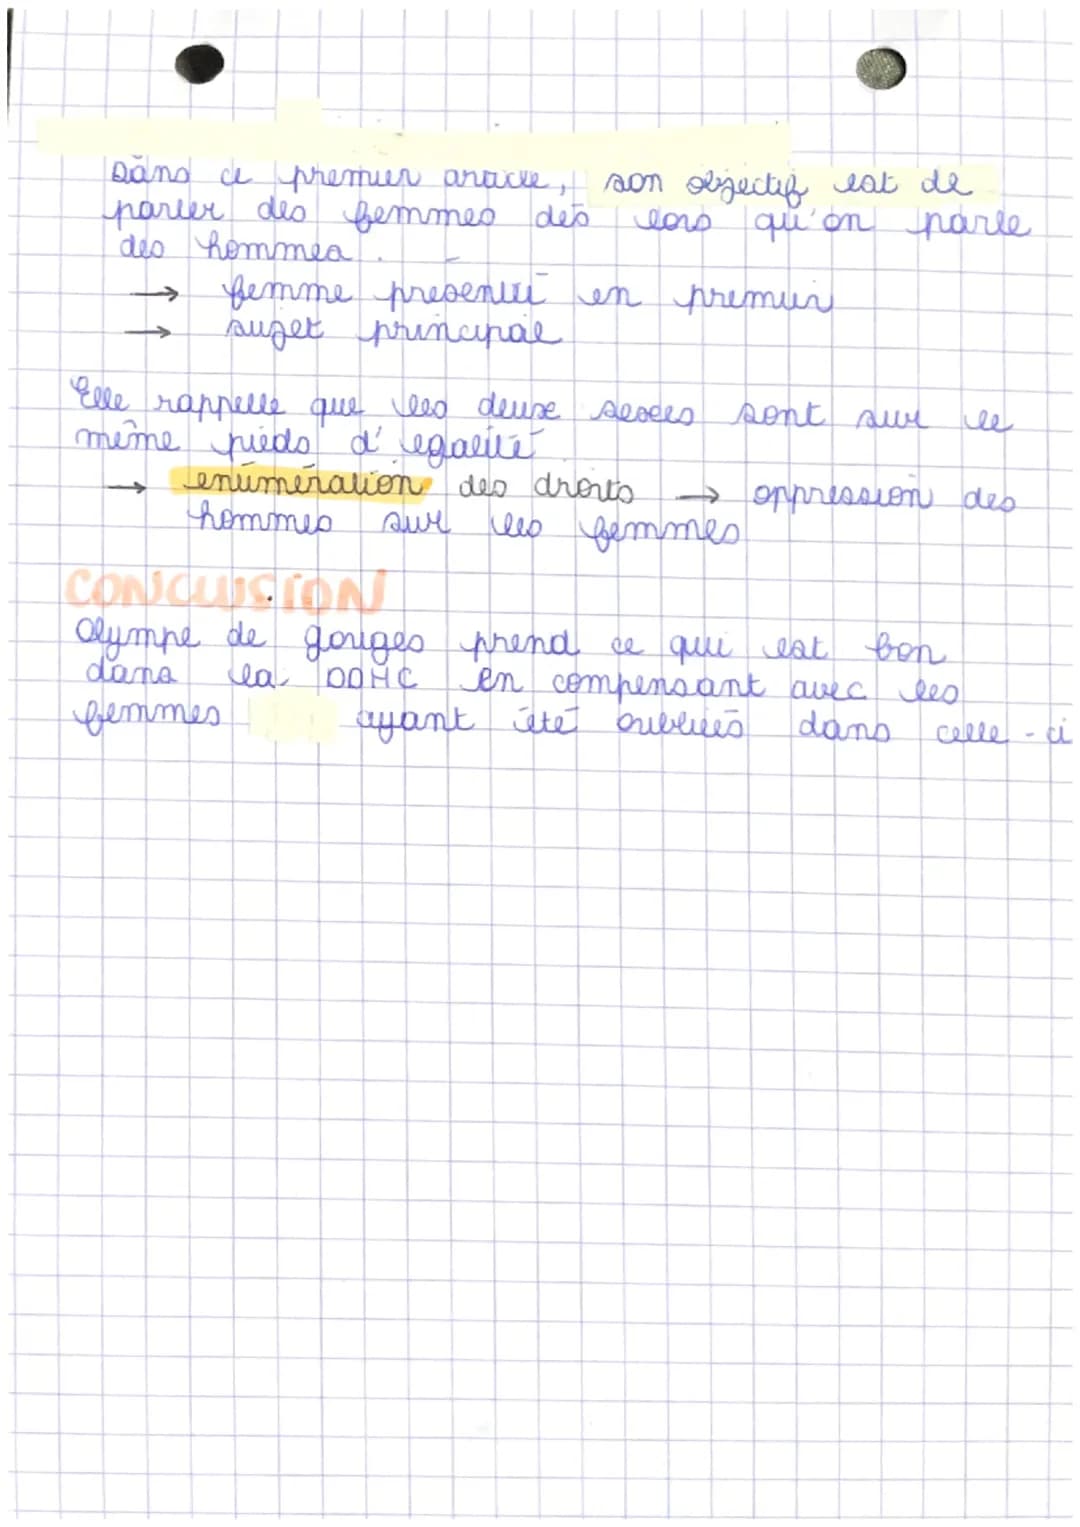 Dans ce premier article, son objectif est de
parler des femmes dès lors qu'on parle
des hommes.
→ femme présenté en premier
→ sujet principal
Elle rappelle que les deux sexes sont sur le
même pieds d'égalité
→ enumération des droits → oppression des
hommes sur les femmes
CONCLUSION
Olympe de gouges prend ce qui est bon
dans la DDHC en compensant avec les
femmes ayant été oubliés dans celle-ci